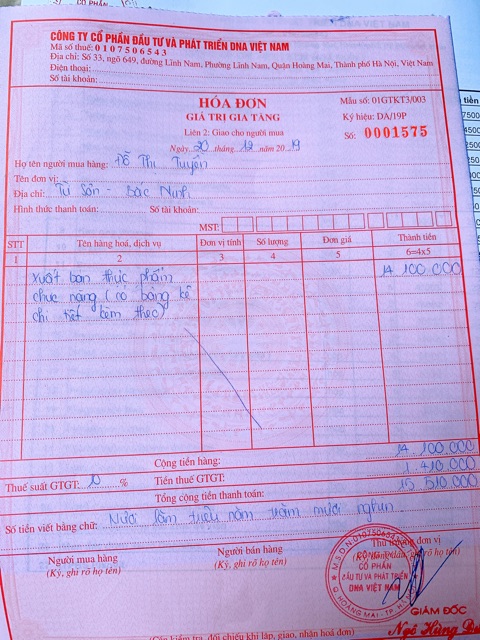 CÔNG TY CỔ PHẦN ĐẦU TƯ VÀ PHÁT TRIỂN DNA VIỆT NAM
Mã số thuế: 0107506543
Địa chỉ: Số 33, ngõ 649, đường Lĩnh Nam, Phường Lĩnh Nam, Quận Hoàng Mai, Thành phố Hà Nội, Việt Nam
Điện thoại:
Số tài khoản:
HÓA ĐƠN
GIÁ TRỊ GIA TĂNG
Liên 2: Giao cho người mua
Ngày 20 tháng 12 năm 2019
Mẫu số: 01GTKT3/003
Ký hiệu: DA/19P
Số: 0001575
Họ tên người mua hàng: Đỗ Thị Tuyên
Tên đơn vị:
Địa chỉ: Từ Sơn - Bắc Ninh
Hình thức thanh toán: Số tài khoản:
MST:
STT Tên hàng hoá, dịch vụ Đơn vị tính Số lượng Đơn giá Thành tiền
1 2 3 4 5 6=4x5
Xuất bán thực phẩm 14 100.000
chức năng (có bảng kê
chi tiết kèm theo)
Cộng tiền hàng: 14.100.000
Thuế suất GTGT: 10 % Tiền thuế GTGT: 1.410.000
Tổng cộng tiền thanh toán: 15.510.000
Số tiền viết bằng chữ: Mười lăm triệu năm trăm mười nghìn
Người mua hàng Người bán hàng Thủ trưởng đơn vị
(Ký, ghi rõ họ tên) (Ký, ghi rõ họ tên) ghi rõ họ tên)
M.S.D.N:0107506543
CÔNG TY
CỔ PHẦN
ĐẦU TƯ VÀ PHÁT TRIỂN
DNA VIỆT NAM
Q.HOÀNG MAI - TP. H
GIÁM ĐỐC
Ngô Hùng
(Cần kiểm tra, đối chiếu khi lập, giao, nhận hoá đơn)